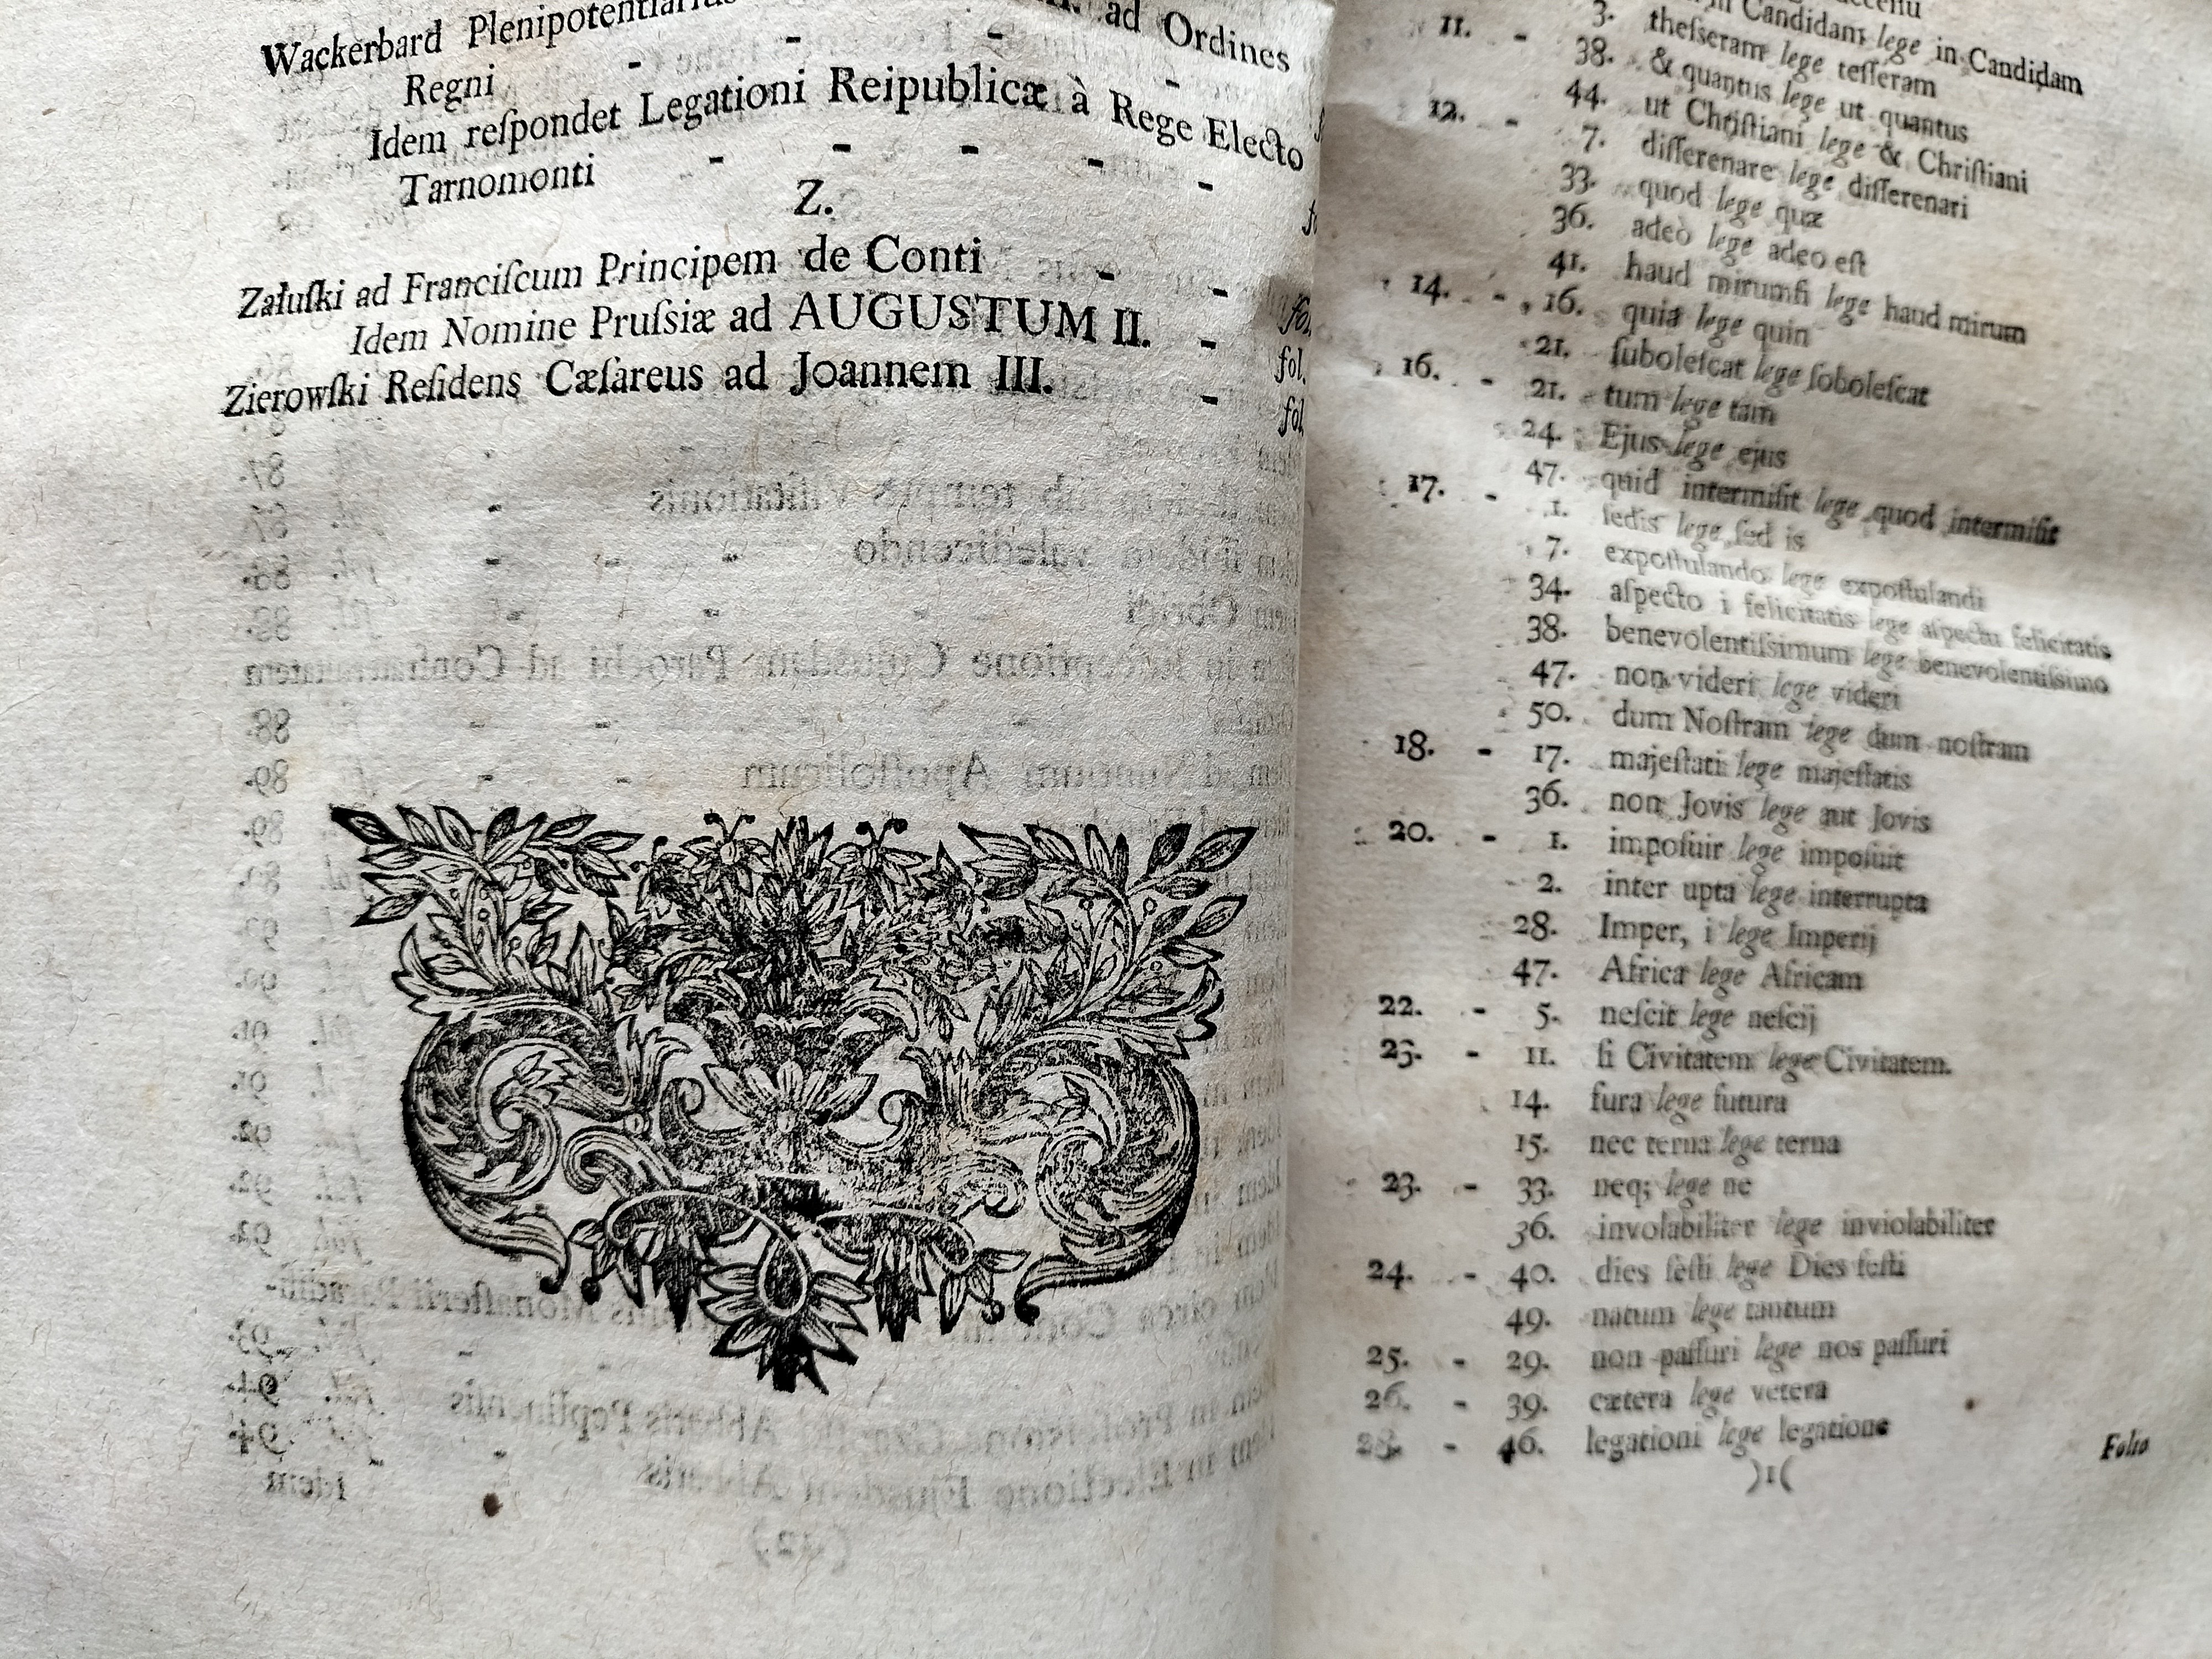 Wackerbard Plenipotentiarius ad Ordines
Regni - - - -
Idem reſpondet Legationi Reipublicæ à Rege Electo
Tarnomonti - - - - -
Z.
Załuſki ad Franciſcum Principem de Conti - - fol.
Idem Nomine Pruſsiæ ad AUGUSTUM II. - fol.
Zierowſki Reſidens Cæſareus ad Joannem III. - fol.
in Candidam lege in Candidam
11. - 3. theſseram lege teſſeram
38. & quantus lege ut quantus
44. ut Chriſtiani lege & Chriſtiani
12. - 7. diſſerenare lege diſſerenari
33. quod lege quæ
36. adeò lege adeo eſt
41. haud mirumſi lege haud mirum
14. - 16. quia lege quin
21. ſuboleſcat lege ſoboleſcat
16. - 21. tum lege tam
24. Ejus lege ejus
47. quid intermiſit lege quod intermiſit
17. - 1. ſedis lege ſed is
7. expoſtulando lege expoſtulandi
34. aſpecto i felicitatis lege aſpectu felicitatis
38. benevolentiſsimum lege benevolentiſsimo
47. non videri lege videri
50. dum Noſtram lege dum noſtram
18. - 17. majeſtati lege majeſtatis
36. non Jovis lege aut Jovis
20. - 1. impoſuir lege impoſuit
2. inter upta lege interrupta
28. Imper, i lege Imperij
47. Africæ lege Africam
22. - 5. neſcit lege neſcij
23. - 11. ſi Civitatem lege Civitatem.
14. fura lege futura
15. nec terna lege terna
23. - 33. neq; lege ne
36. involabiliter lege inviolabiliter
24. - 40. dies feſti lege Dies feſti
49. natum lege tantum
25. - 29. non paſſuri lege nos paſſuri
26. - 39. cætera lege vetera
28. - 46. legationi lege legatione
)1( Folio